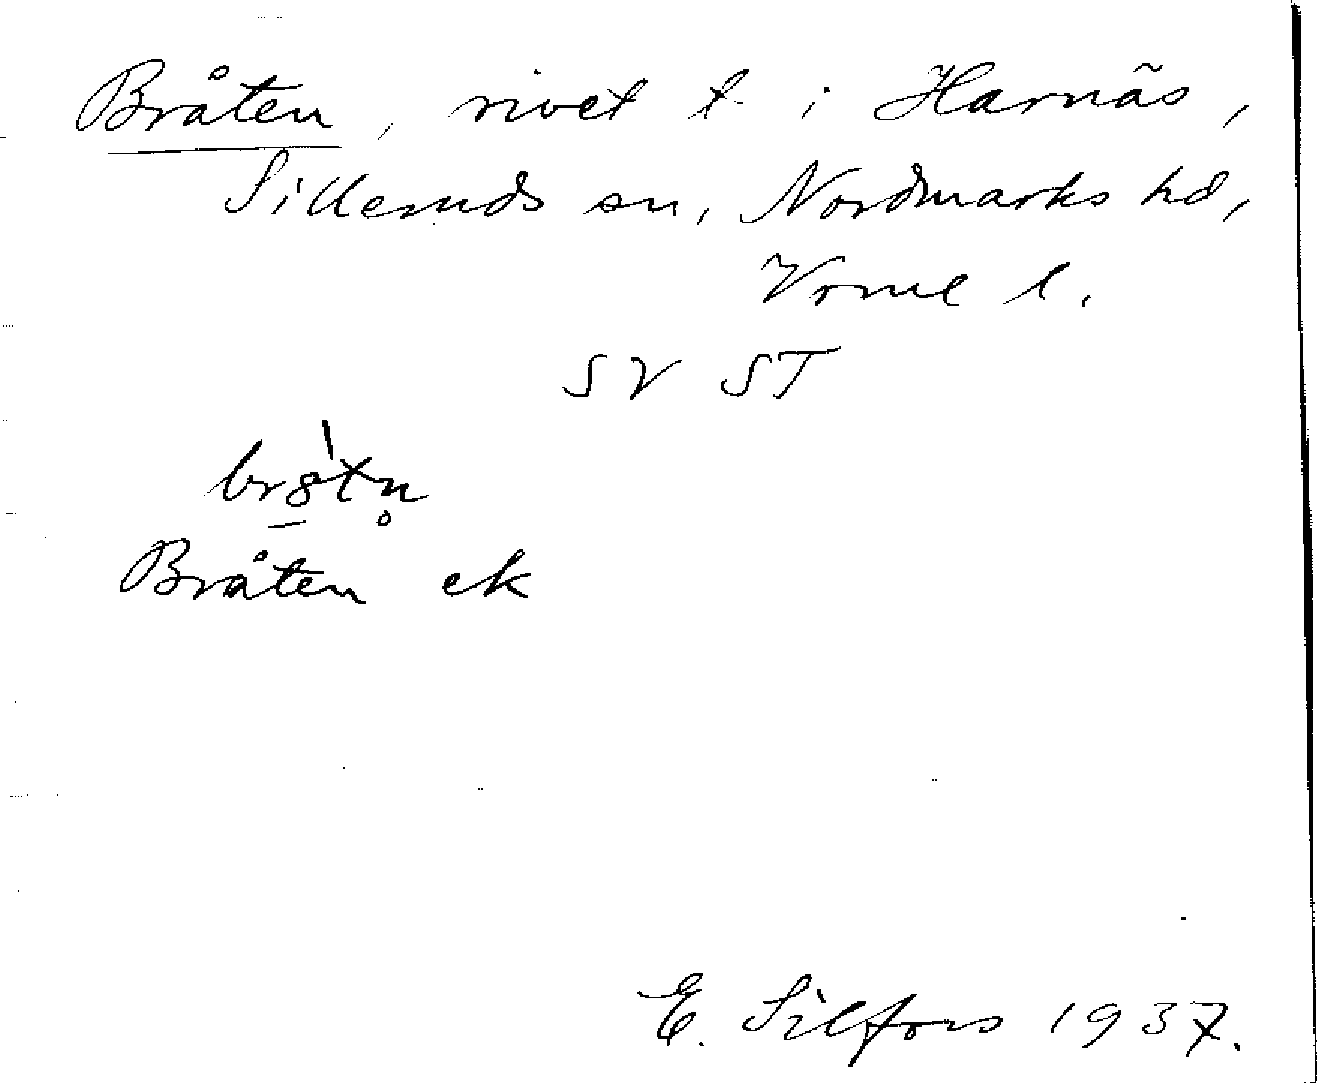 Bråten, rivet t. i Harnäs,
Silleruds sn, Nordmarks hd,
Vrml l.
SV ST
Bråten ek
E. Silfors 1937.